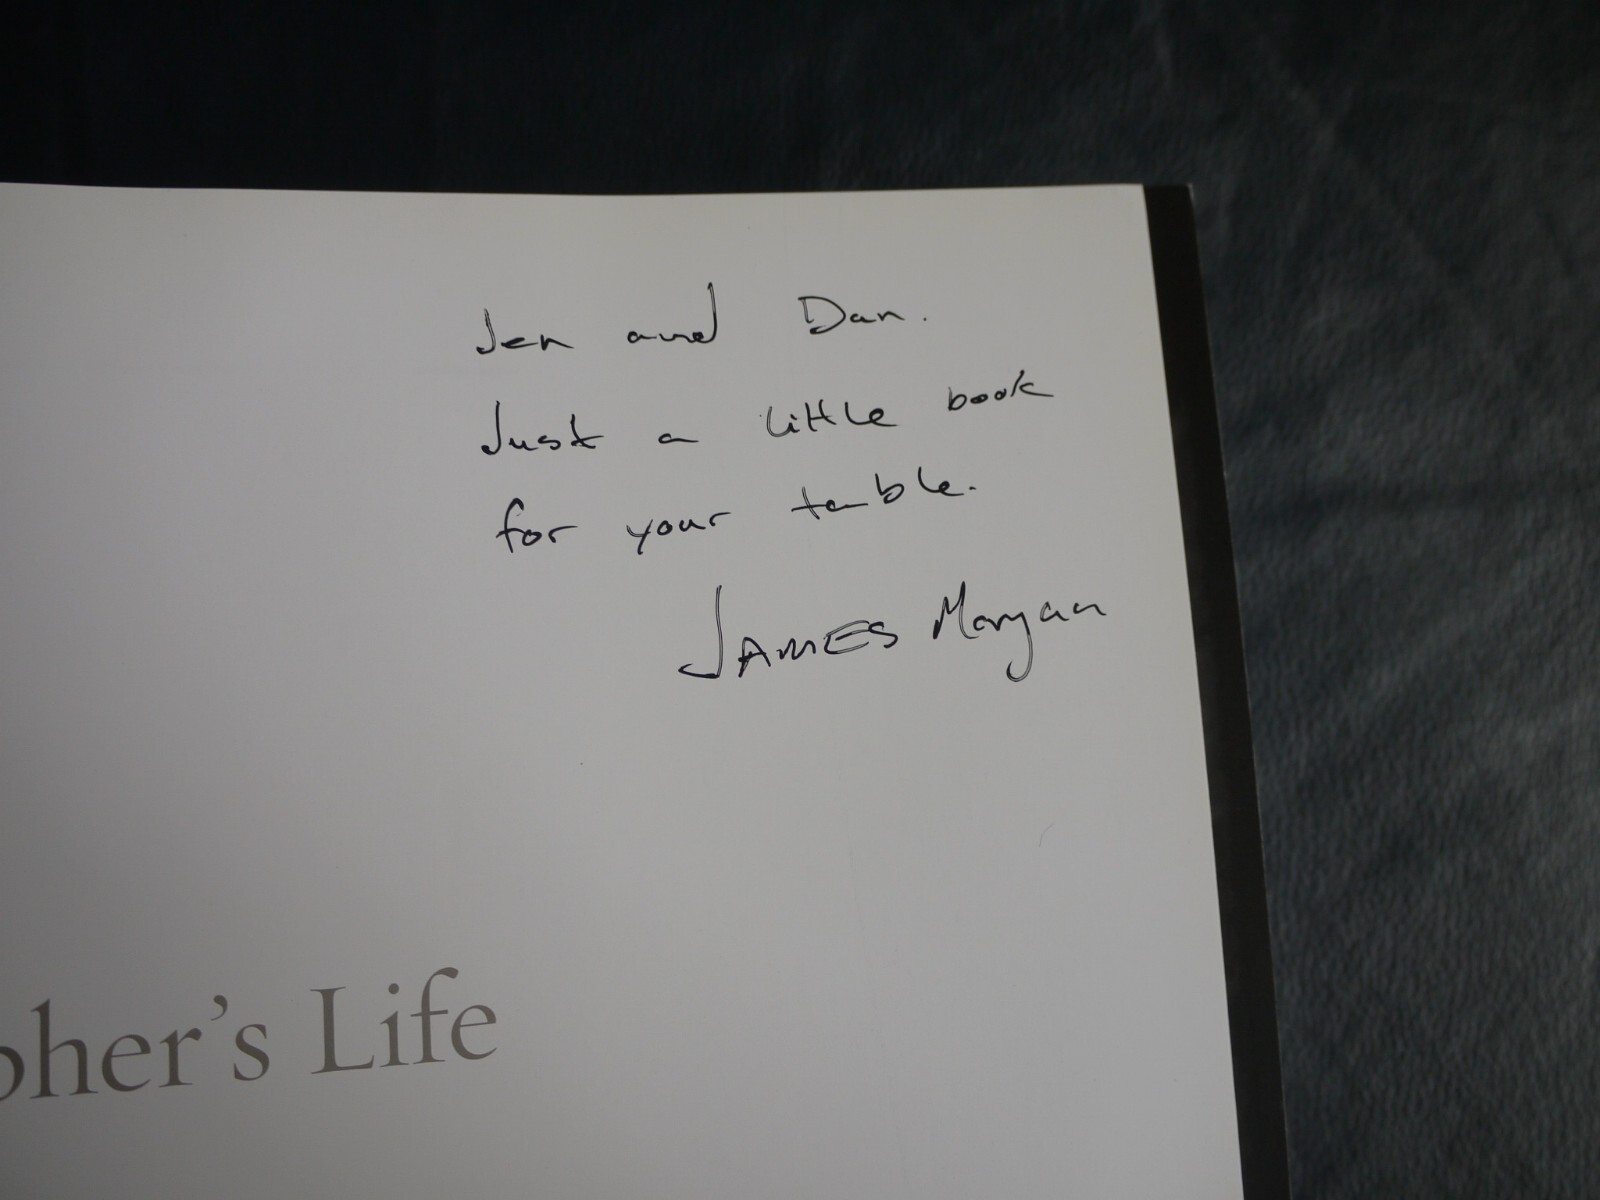 Jen and Dan.
Just a little book
for your table.
JAMES Morgan
pher's Life